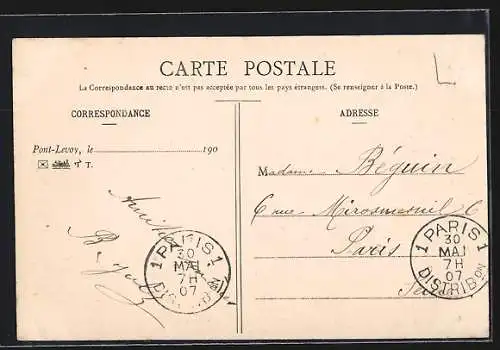 CARTE POSTALE
La Correspondance au recto n'est pas acceptée par tous les pays étrangers. (Se renseigner à la Poste.)
CORRESPONDANCE
ADRESSE
Pont-Levoy, le 190
T.
Madame Béguin
6 rue Miromesnil 6
Paris
1 PARIS 1
30
MAI
7H
07
DISTRIBON
1 PARIS 1
30
MAI
7H
07
DISTRIBON